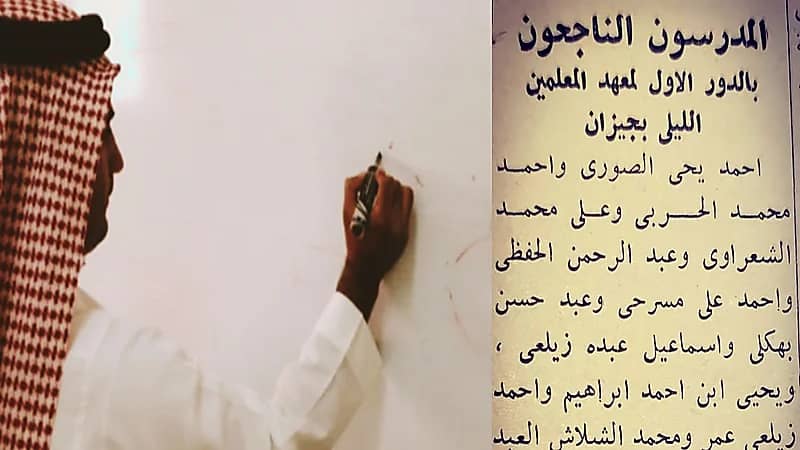 المدرسون الناجحون
بالدور الاول لمعهد المعلمين
الليلى بجيزان
احمد يحى الصورى واحمد
محمد الحربى وعلى محمد
الشعراوى وعبد الرحمن الحفظى
واحمد على مسرحى وعبد حسن
بهكلى واسماعيل عبده زيلعى ،
ويحيى ابن احمد ابراهيم واحمد
زيلعى عمر ومحمد الشلاش العبد